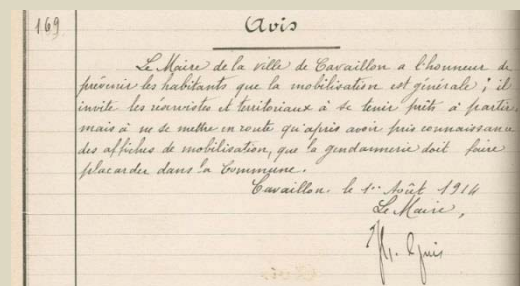 169
Avis
Le Maire de la ville de Cavaillon a l'honneur de
prévenir les habitants que la mobilisation est générale ; il
invite les réservistes et territoriaux à se tenir prêts à partir,
mais à ne se mettre en route qu'après avoir pris connaissance
des affiches de mobilisation, que la gendarmerie doit faire
placarder dans la Commune.
Cavaillon, le 1er Août 1914
Le Maire,